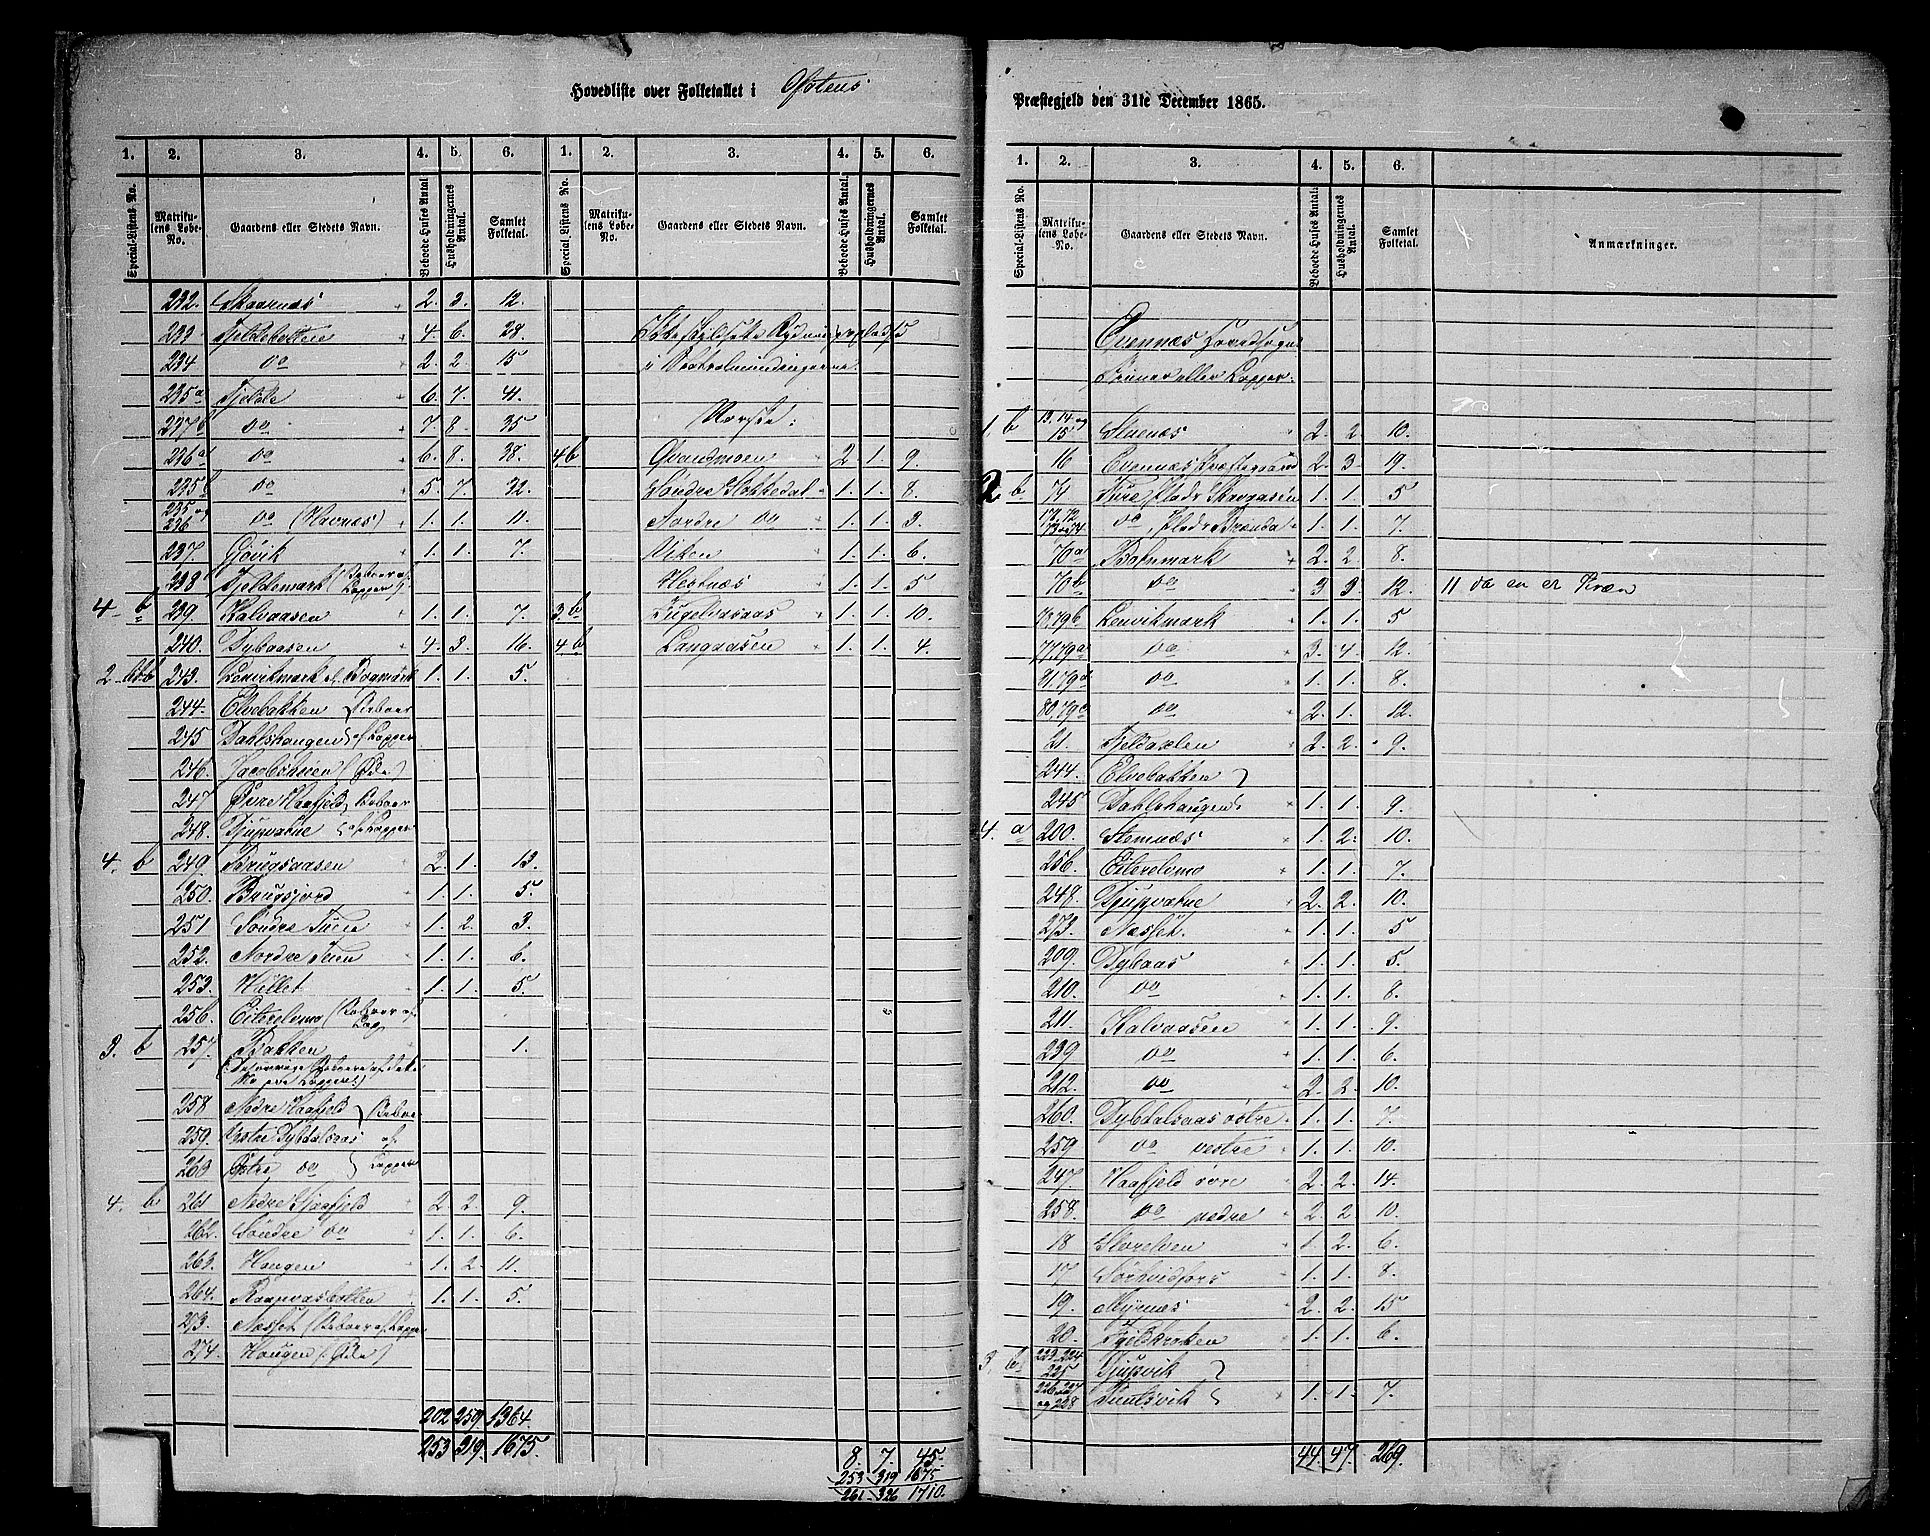 Hovedliste over Folketallet i Ofotens
1. 2. 3. 4. 5. 6. 1. 2. 3. 4. 5. 6.
Special-Listens No. Matrikulens Løbe-No. Gaardens eller Stedets Navn. Beboede Huses Antal. Husholdningernes Antal. Samlet Folketal. Special Listens No. Matrikulens Løbe-No. Gaardens eller Stedets Navn. Beboede Huses Antal. Husholdningernes Antal. Samlet Folketal.
232. Skaarnæs 2. 3. 12.
233. Fjeldebotten 4. 6. 28.
234 do 2. 2. 15
235a Fjelde 6. 7. 41.
237b do 7. 8. 35
236a do 6. 8. 38.
235b do 5. 7. 32.
235 og 236 do (Havnæs) 1. 1. 10.
237. Gjøvik 1. 1. 7.
238 Fjeldemark (Beboer af Lapper)
4. b 239. Kalvaasen 1. 1. 7.
240. Dybaasen 4. 3. 16.
2. b 243. Lenvikmark el. Bogmark 1. 1. 5.
244. Elvebakken (Beboer
245 Dahlshaugen af Lapper
246. Jacobsheien (Øde)
247 Øvre Haafjeld Beboer
248. Djupvatne af Lapper
4. b 249. Brugsaasen 2. 1. 13.
250. Brugsjord 1. 1. 5.
251 Søndre Tuen 1. 2. 3.
252. Nordre Tuen 1. 1. 6.
253. Hillet 1. 1. 5.
256. Eiterelvmo (Beboer af Lap
3. b 257. Bakken 1.
258 Nedre Haafjeld (Beboer
259. Vestre Dybdalsaas af
260 Østre do Lapper
4. b 261 Nedre Graafjeld 2. 2. 9.
262. Søndre do 1. 1. 6.
263. Haugen 1. 2. 11.
264. Raapvasbotten 1. 1. 5.
273. Nesset (Beboer af Lapper
274. Haugen (Øde)
202 259 1364.
253 319. 1675.
Ikke skyldsatte Rydningspladse
i Statsalmindingerne.
Norske:
4b Qvandmoen 2. 1. 9.
Søndre Stokkedal 1. 1. 8.
Nordre do 1. 1. 3.
Viken 1. 1. 6.
Hestnæs 1. 1. 5
3b Fugelvasaas 1. 1. 10.
4b Langaasen 1. 1. 4.
8. 7. 45.
253 319 1675
261 326 1710.
Præstegjeld den 31te December 1865.
1. 2. 3. 4. 5. 6.
Special-Listens No. Matrikulens Løbe-No. Gaardens eller Stedets Navn. Beboede Huses Antal. Husholdningernes Antal. Samlet Folketal. Anmærkninger.
Evennæs Hovedsogn
Finner eller Lapper:
1. b 13. 14 og 15 Stunæs 2. 2. 10.
16 Evennæs Præstegaard 2. 3. 19.
2 b 74 Ture, Plads Skavaasen 1. 1. 5
do, Plads Brænda 1. 1. 7.
70a Botnmark 2. 2. 8.
70b do 3 3. 12. 11 da en er Kvæn
78, 79b Lenvikmark 1. 1. 5
77, 79a do 3. 4. 12.
81, 79d do 1. 1. 8.
80, 79c do 2. 1. 12.
21. Fjeldaxlen 2. 2. 9.
244. Elvebakken
245 Dahlshaugen 1. 1. 9.
4. a 200. Stemnæs 1. 2. 10.
256. Eiterelvmo 1. 1. 7.
248. Djupvatne 2. 2. 10.
273. Nesset. 1. 1. 5
209. Dybaas 1. 1. 5.
210. do 1. 1. 8.
211. Kalvaasen 1. 1. 9.
239 do 1. 1. 6.
212. do 2. 2. 10.
260. Dybdalsaas østre 1. 1. 7.
259 do vestre 1. 1. 10.
247. Haafjeld øvre 2. 2. 14.
258. do nedre 2. 2 10.
18 Storelven 1. 2. 6.
17 Sørhvidfors 1. 1. 8.
19. Myrnæs 2. 2. 15
20. Fjeldkroken 1. 1. 6.
3. b 223. 224 225 Djupvik
226 227 og 228 Tunlsvik 1. 1. 7.
44. 47. 269.